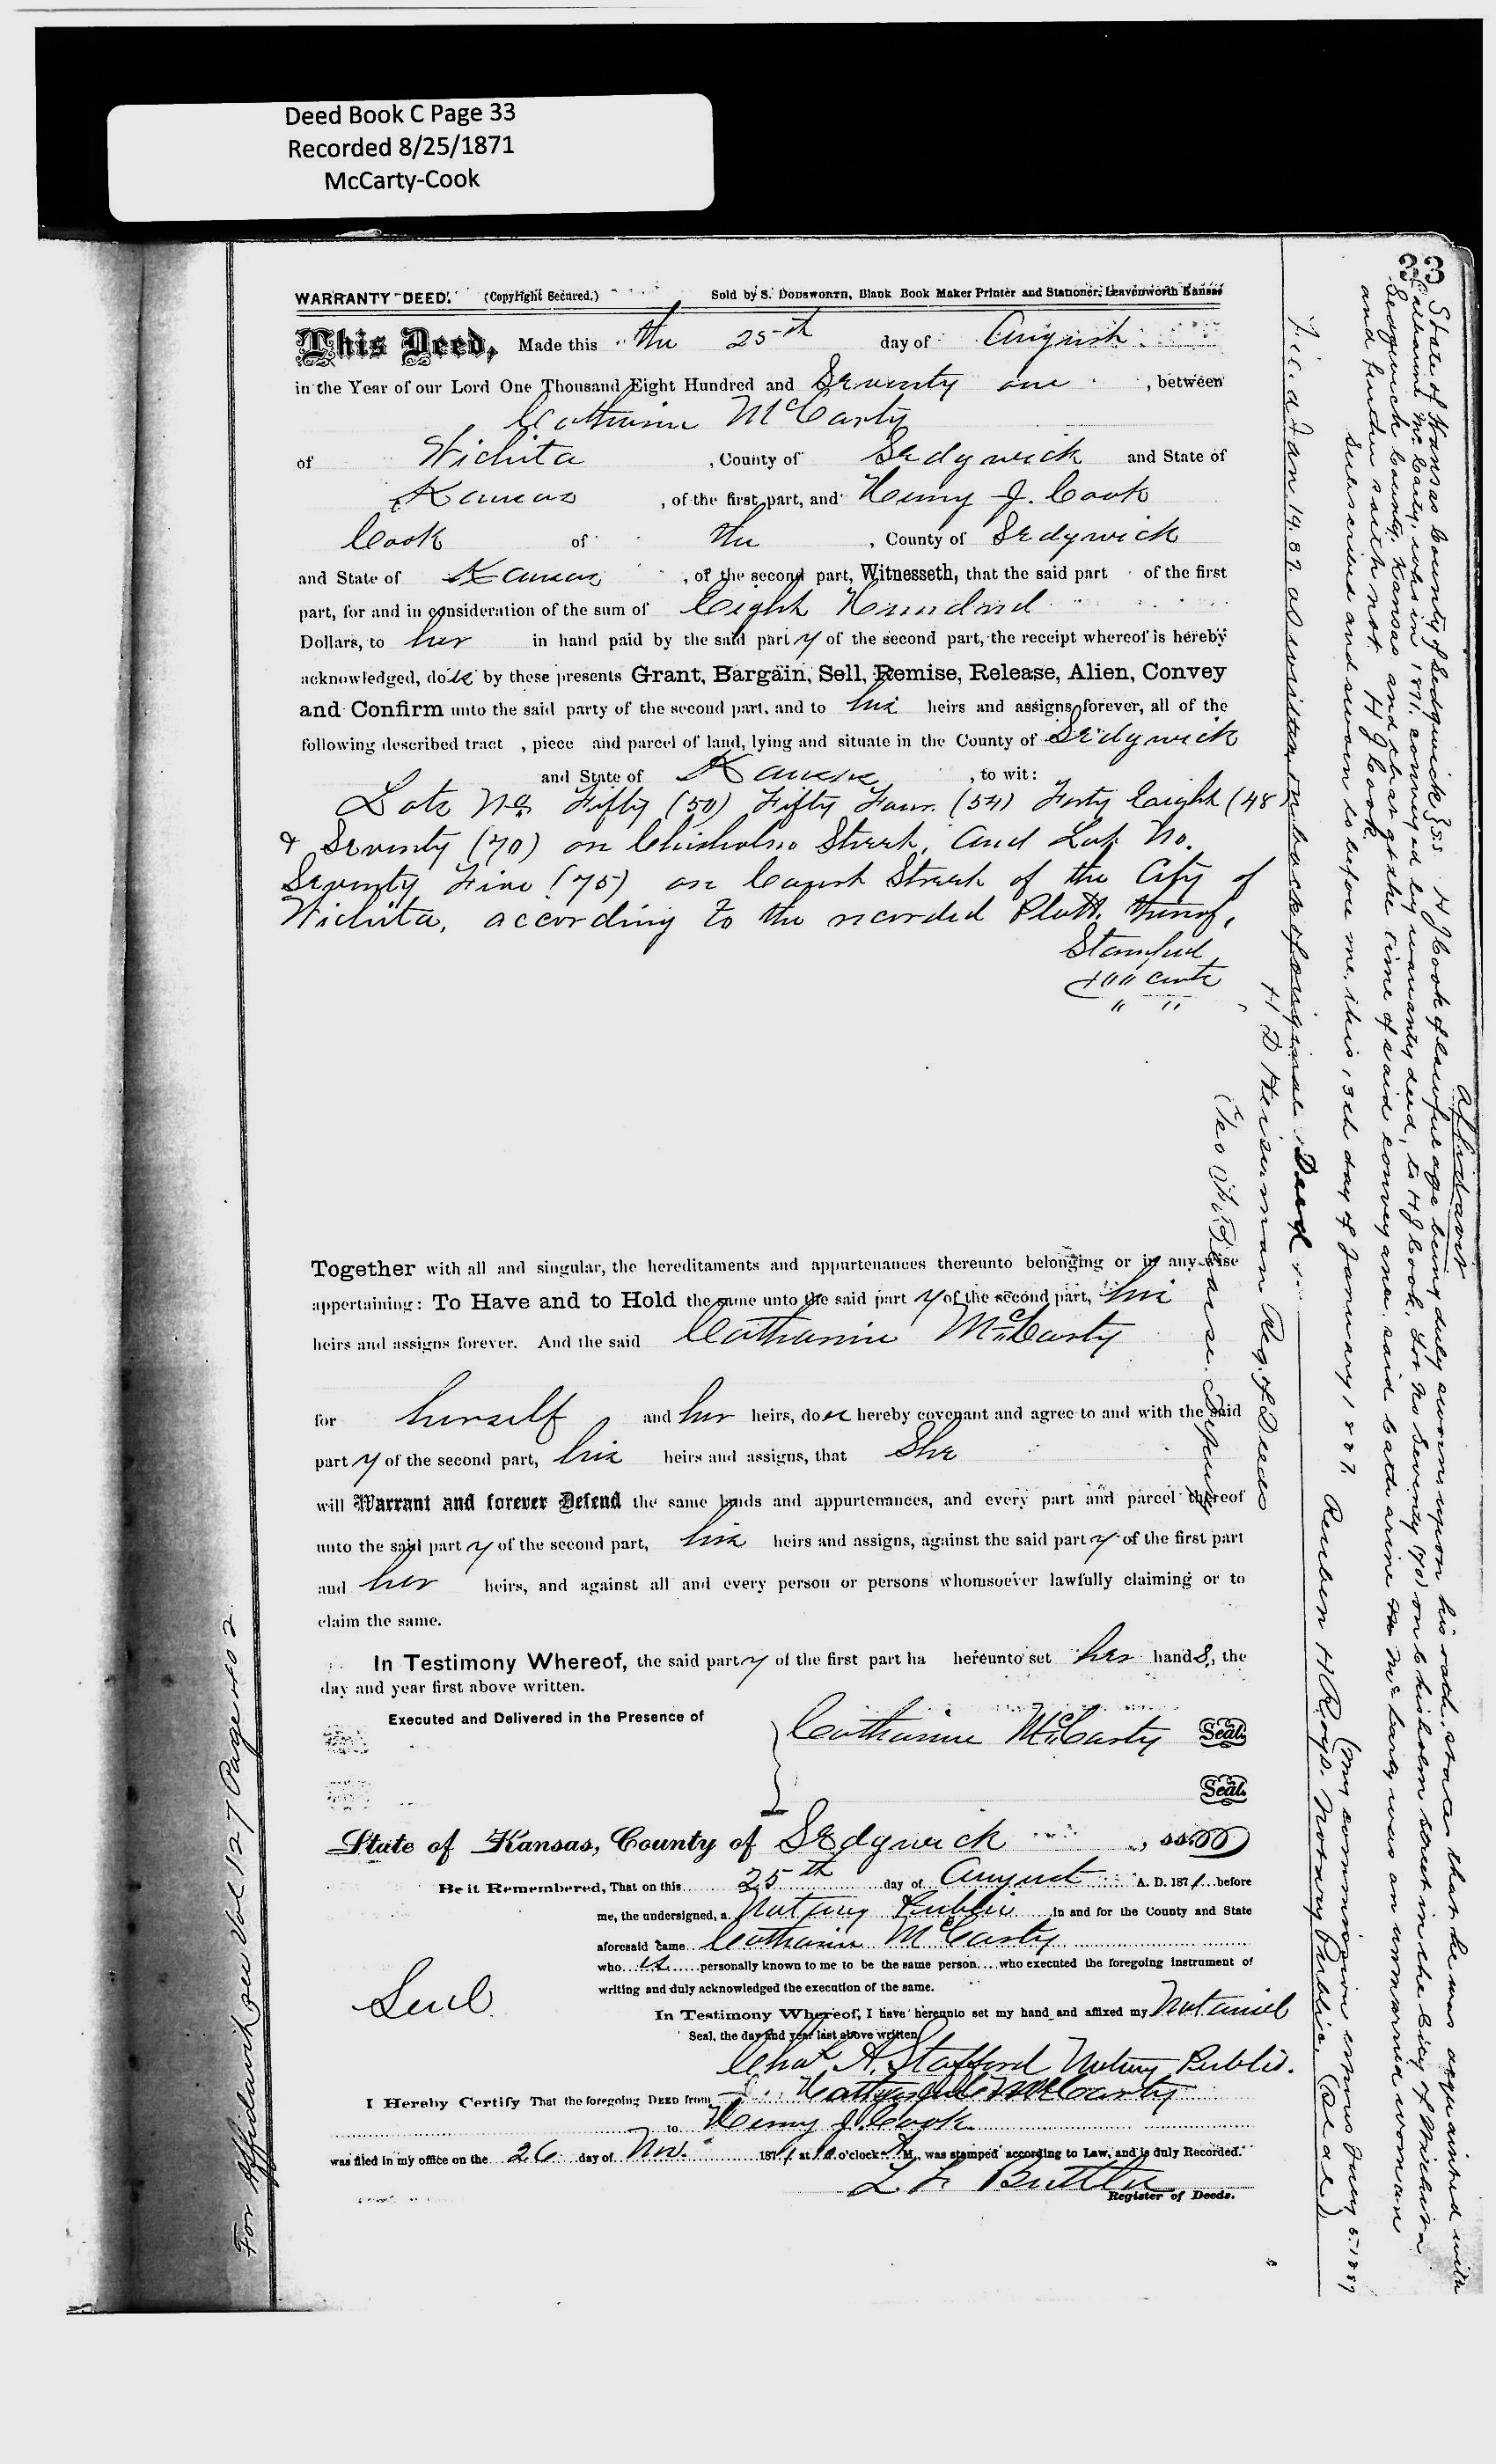 Deed Book C Page 33
Recorded 8/25/1871
McCarty-Cook
33
WARRANTY DEED. (Copyright Secured.) Sold by S. DODSWORTH, Blank Book Maker Printer and Stationer, Leavenworth Kansas
This Deed, Made this the 25th day of August
in the Year of our Lord One Thousand Eight Hundred and Seventy one, between
Catharine McCarty
of Wichita, County of Sedgwick and State of
Kansas, of the first part, and Henry J. Cook
Cook of the, County of Sedgwick
and State of Kansas, of the second part, Witnesseth, that the said part of the first
part, for and in consideration of the sum of Eight Hundred
Dollars, to her in hand paid by the said party of the second part, the receipt whereof is hereby
acknowledged, does by these presents Grant, Bargain, Sell, Remise, Release, Alien, Convey
and Confirm unto the said party of the second part, and to his heirs and assigns forever, all of the
following described tract, piece and parcel of land, lying and situate in the County of Sedgwick
and State of Kansas, to wit:
Lots Nos Fifty (50) Fifty Four (54) Forty Eaight (48)
& Seventy (70) on Chisholm Street, and Lot No.
Seventy Five (75) on Court Street of the City of
Wichita, according to the recorded Platt thereof,
Stamped
Together with all and singular, the hereditaments and appurtenances thereunto belonging or in any-wise
appertaining: To Have and to Hold the same unto the said party of the second part, his
heirs and assigns forever. And the said Catharine McCarty
for herself and her heirs, does hereby covenant and agree to and with the said
party of the second part, his heirs and assigns, that She
will Warrant and forever Defend the same lands and appurtenances, and every part and parcel thereof
unto the said party of the second part, his heirs and assigns, against the said party of the first part
and her heirs, and against all and every person or persons whomsoever lawfully claiming or to
claim the same.
In Testimony Whereof, the said party of the first part ha hereunto set her hand S, the
day and year first above written.
Executed and Delivered in the Presence of
Catharine McCarty Seal.
Seal.
State of Kansas, County of Sedgwick, ss.
Be it Remembered, That on this 25th day of August A. D. 1871 before
me, the undersigned, a Notary Public in and for the County and State
aforesaid came Catharine McCarty
who is personally known to me to be the same person who executed the foregoing instrument of
writing and duly acknowledged the execution of the same.
In Testimony Whereof, I have hereunto set my hand and affixed my Notarial
Seal, the day and year last above written
Seal
Chas A. Stafford Notary Public.
I Hereby Certify That the foregoing DEED from McCarty
to Henry J. Cook
was filed in my office on the 26 day of Nov. 1871 at 10 o'clock M., was stamped according to Law, and is duly Recorded.
Register of Deeds.
For Affidavit see Vol 127 Page 402
Affidavit
State of Kansas County of Sedgwick } ss H J Cook of lawful age being duly sworn upon his oath, states that he was acquainted with
Catharine McCarty, who in 1871, conveyed by warranty deed, to H J Cook, Lot No Seventy (70) on Chisholm street in the City of Wichita
Sedgwick County, Kansas and that at the time of said conveyance, said Catharine McCarty was an unmarried woman
and further saith not. H J Cook.
Subscribed and sworn to before me, this 13th day of January 1887. (My commission expires July 5-1889
Reuben H Roys. Notary Public. (Seal)
Filed Jan 14. 87. as written on back of original Deed
H D Heiserman Reg. of Deeds
Deputy